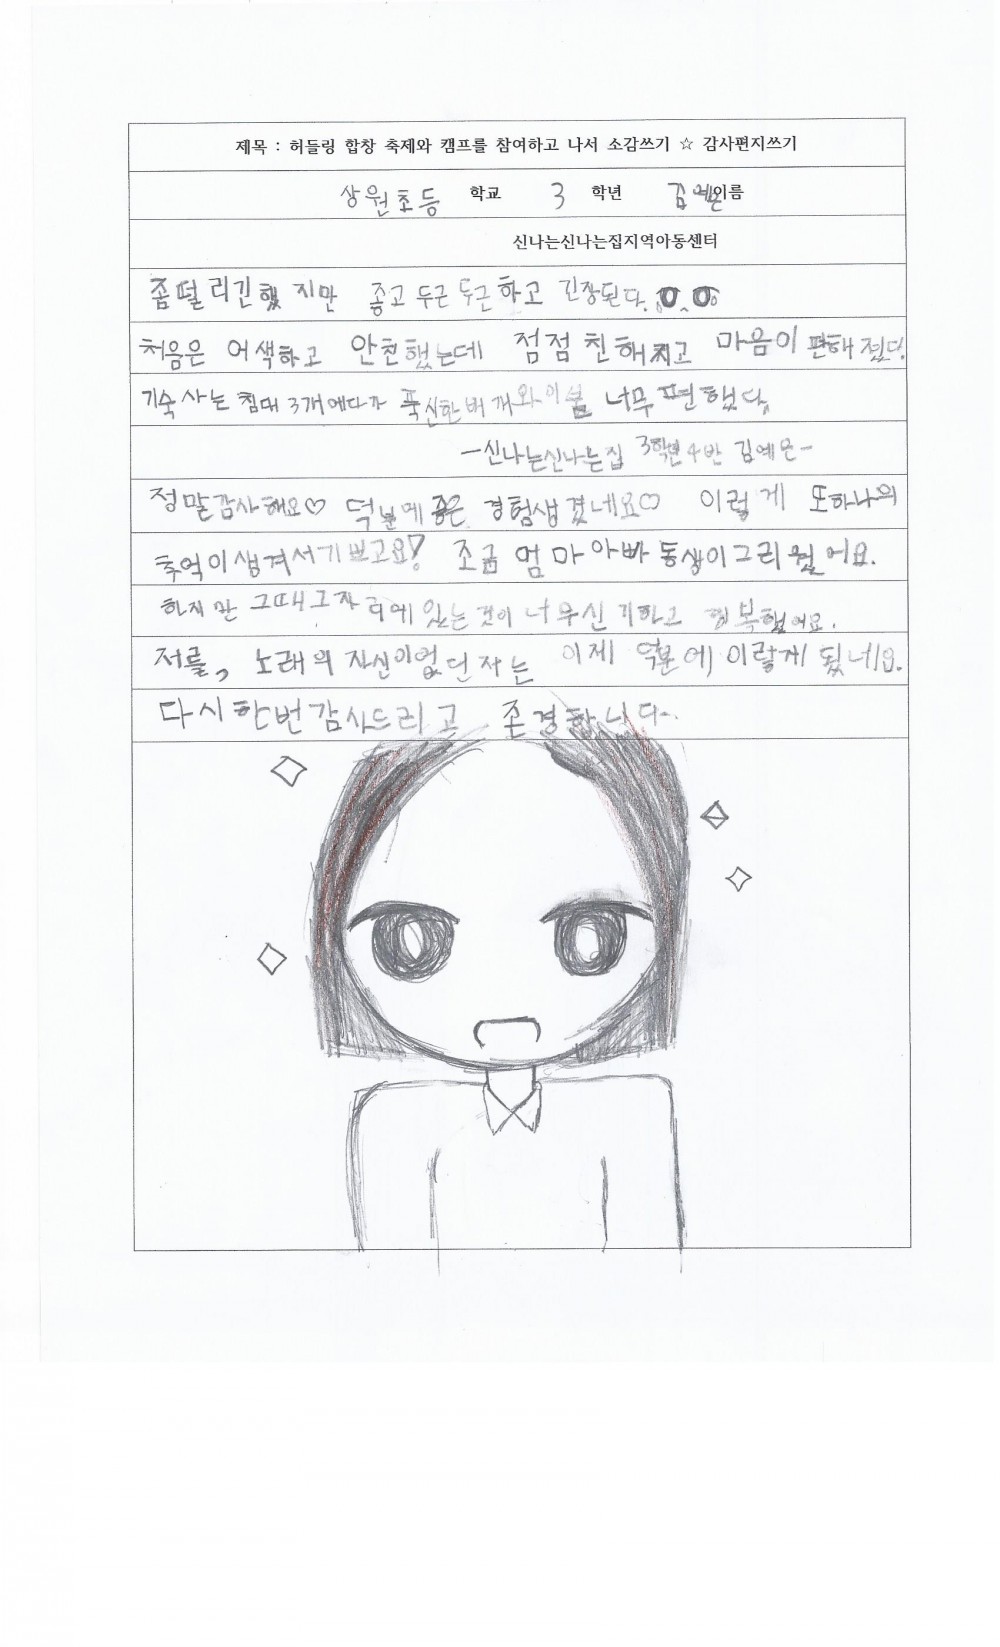 제목 : 허들링 합창 축제와 캠프를 참여하고 나서 소감쓰기 ☆ 감사편지쓰기
상원초등 학교 3 학년 김예온 이름
신나는신나는집지역아동센터
좀떨리긴했지만 좋고 두근두근하고 긴장된다.
처음은 어색하고 안친했는데 점점 친해지고 마음이 편해졌다.
기숙사는 침대 3개에다가 푹신한베개와이불 너무편했다.
-신나는신나는집 3학년4반 김예온-
정말감사해요♡ 덕분에좋은 경험생겼네요♡ 이렇게 또하나의
추억이생겨서기쁘고요! 조금 엄마아빠동생이그리웠어요.
하지만 그때그자리에있는것이 너무신기하고 행복했어요.
저를, 노래의 자신이없던저는 이제 덕분에이렇게됬네요.
다시한번감사드리고 존경합니다..